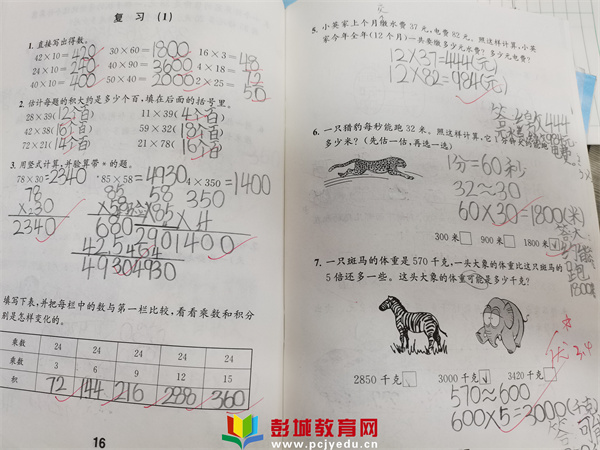 复 习 (1)
1. 直接写出得数。
42×10=420 30×60=1800 16×3=48
24×10=240 40×90=3600 4×18=72
40×10=400 50×40=2000 2×25=50
2. 估计每题的积大约是多少个百，填在后面的括号里。
28×39(12个百) 11×39(4个百)
42×38(16个百) 59×32(18个百)
72×21(14个百) 21×78(16个百)
3. 用竖式计算，并验算带*的题。
78×30=2340 *85×58=4930 4×350=1400
78 85 58 350
×30 ×58 ×85 ×4
2340 680 290 1400
425 464
4930 4930
填写下表，并把每栏中的数与第一栏比较，看看乘数和积分
别是怎样变化的。
乘数 24 24 24 24 24
乘数 3 6 9 12 15
积 72 144 216 288 360
16
5. 小英家上个月缴水费 37 元，电费 82 元。照这样计算，小英
家今年全年(12 个月)一共要缴多少元水费？多少元电费？
12×37=444(元)
12×82=984(元)
6. 一只猎豹每秒能跑 32 米。照这样计算，它
多少米？(先估一估，再选一选)
1分=60秒
32≈30
60×30=1800(米)
300 米 900 米 1800 米√
7. 一只斑马的体重是 570 千克，一头大象的体重比这只斑马的
5 倍还多一些。这头大象的体重可能是多少千克？
2850 千克 3000 千克√ 3420 千克
570≈600
600×5=3000(千克)
彭城教育网
www.pcjyedu.cn